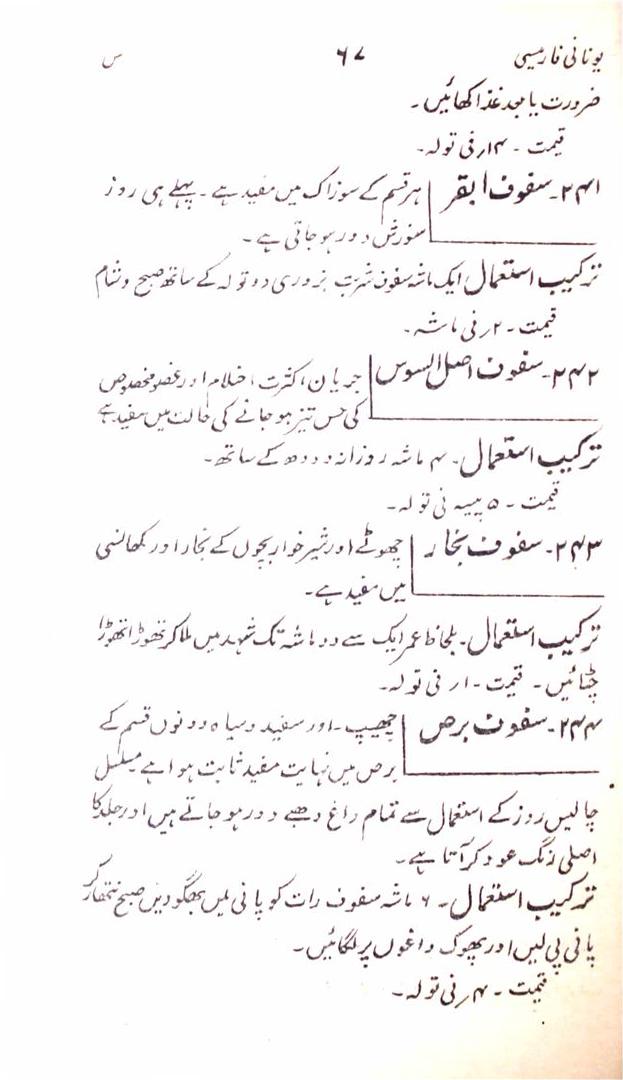 یونانی فارمیسی ۶۷ س
ضرورت یا بعد غذا کھائیں۔
قیمت ۔ ۴؍ فی تولہ۔
۲۴۱۔ سفوف ابقر ہر قسم کے سوزاک میں مفید ہے ۔ پہلے ہی روز
سوزش دور ہو جاتی ہے ۔
ترکیب استعمال ایک ماشہ سفوف شربت بزوری دو تولہ کے ساتھ صبح و شام
قیمت ۔ ۲؍ فی ماشہ۔
۲۴۲۔ سفوف اصل السوس جریان، کثرت احتلام اور عضو مخصوص
کی حس تیز ہو جانے کی حالت میں مفید ہے
ترکیب استعمال۔ ۴ ماشہ روزانہ دودھ کے ساتھ۔
قیمت ۔ ۵ پیسہ فی تولہ۔
۲۴۳۔ سفوف بخار چھوٹے اور شیر خوار بچوں کے بخار اور کھانسی
میں مفید ہے۔
ترکیب استعمال۔ بلحاظ عمر ایک سے دو ماشہ تک شہد میں ملا کر تھوڑا تھوڑا
چٹائیں ۔ قیمت ۔ ۱؍ فی تولہ۔
۲۴۴۔ سفوف برص چھیپ ۔ اور سفید و سیاہ دونوں قسم کے
برص میں نہایت مفید ثابت ہوا ہے مسلسل
چالیس روز کے استعمال سے تمام داغ دھبے دور ہو جاتے ہیں اور جلد کا
اصلی رنگ عود کر آتا ہے۔
ترکیب استعمال۔ ۶ ماشہ سفوف رات کو پانی میں بھگو دیں صبح نتھار کر
پانی پی لیں اور پھوک داغوں پر لگائیں۔
قیمت ۔ ۴؍ فی تولہ۔